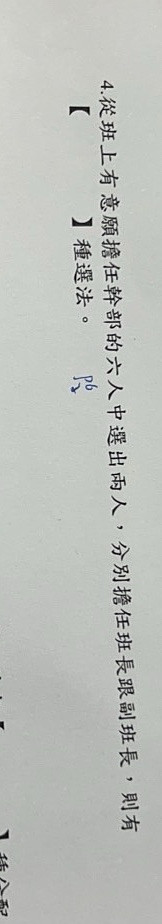 4.從班上有意願擔任幹部的六人中選出兩人，分別擔任班長跟副班長，則有
【 】種選法。
P6
2
】種分配